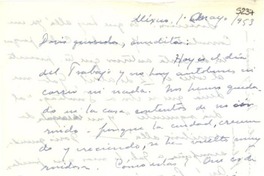 México, 1º Mayo /953
Doris querida, bendita: Hoy es el día
del Trabajo y no hay autobuses ni
correo ni nada. Nos hemos queda-
do en la casa, contentos de no
ruido - porque la ciudad, crecien-
do y creciendo, se ha vuelto muy
ruidosa. Cómo estás?